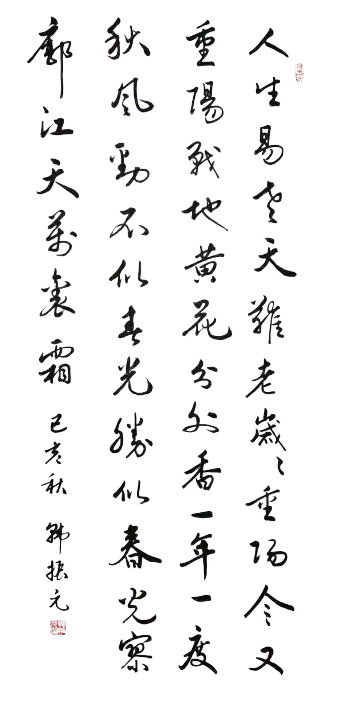 人生易老天難老歲〻重陽今又
重陽戰地黃花分外香一年一度
秋風勁不似春光勝似春光寥
廓江天萬裏霜 己亥秋 韩振元